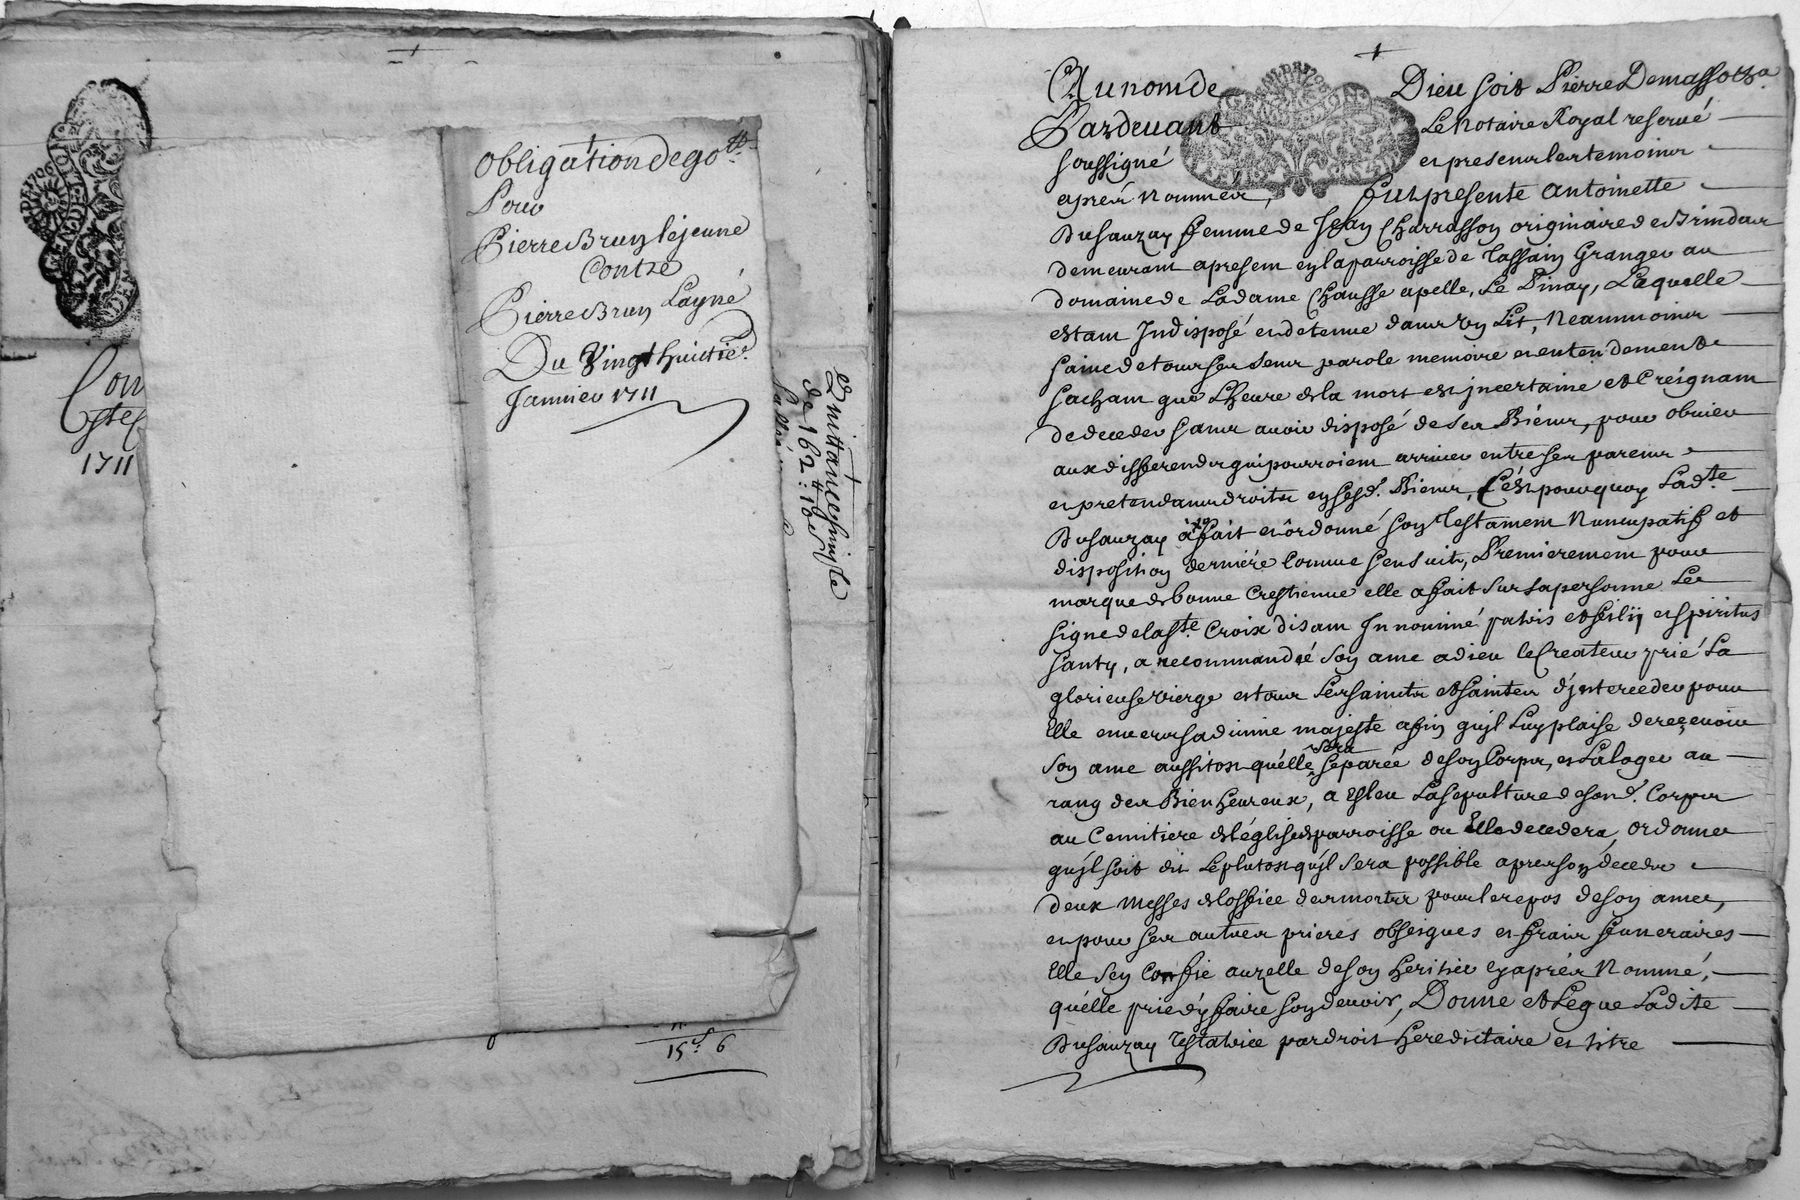 Obligation de 90 tt
Pour
Pierre Brun lejeune
Contre
Pierre Brun Layné
Du Vingt huictie.
Jannier 1711
Quittance simple
de 162: tt 10 s
Con
1711
15 s 6
Au nom de Dieu soit Pierre Demassot
Pardevant Le Notaire Royal reservé
soussigné et presens les temoins
aprés Nommés, fut presente Antoinette
Dusauzay femme de Jean Charrasson originaire de Brindas
demeurant apresent en la parroisse de Tassain Granger au
domaine de Ladame Chausse apellé, Le Pinay, Laquelle
estant Indisposé et detenue dans un Lit, Neanmoins
saine de tous ses sens parole memoire et entendement
sachant que L'heure de la mort est incertaine et Creignant
de deceder sans avoir disposé de ses Biens, pour obvier
aux differends qui pourroient arriver entre ses parens
et pretendans droits en sesd. Biens, C'est pourquoy Lad.te
Dusauzay à fait et ordonné son Testament Nuncupatif et
disposition derniére Comme sensuit, Premierement pour
marque de bonne Crestienne elle a fait sur sa personne Le
signe de la Ste. Croix disant In nominé patris et filij et spiritus
santy, a recommandé son ame a dieu le Createur prié La
glorieuse vierge et tous Les saints et saintes d'jnterceder pour
Elle envers sa divine majesté afin qu'jl Luy plaise de reçevoir
son ame aussitost qu'élle sera séparée de son Corps, et La loger au
rang des Bien heureux, a Esleu La sepulture de sond. Corps
au Cemitiere de l'église parroisse ou Elle decedera, ordonne
qu'jl soit dit Le plutost qu'jl sera possible apres son déceds
deux Messes de l'office des morts pour le repos de son ame,
et pour ses autres prieres obseques et frais funeraires
Elle s'en Confie au zelle de son heritier cy aprés Nommé,
qu'élle prie d'y faire son devoir, Donne et Legue Ladite
Dusauzay Testatrice par droit hereditaire et titre